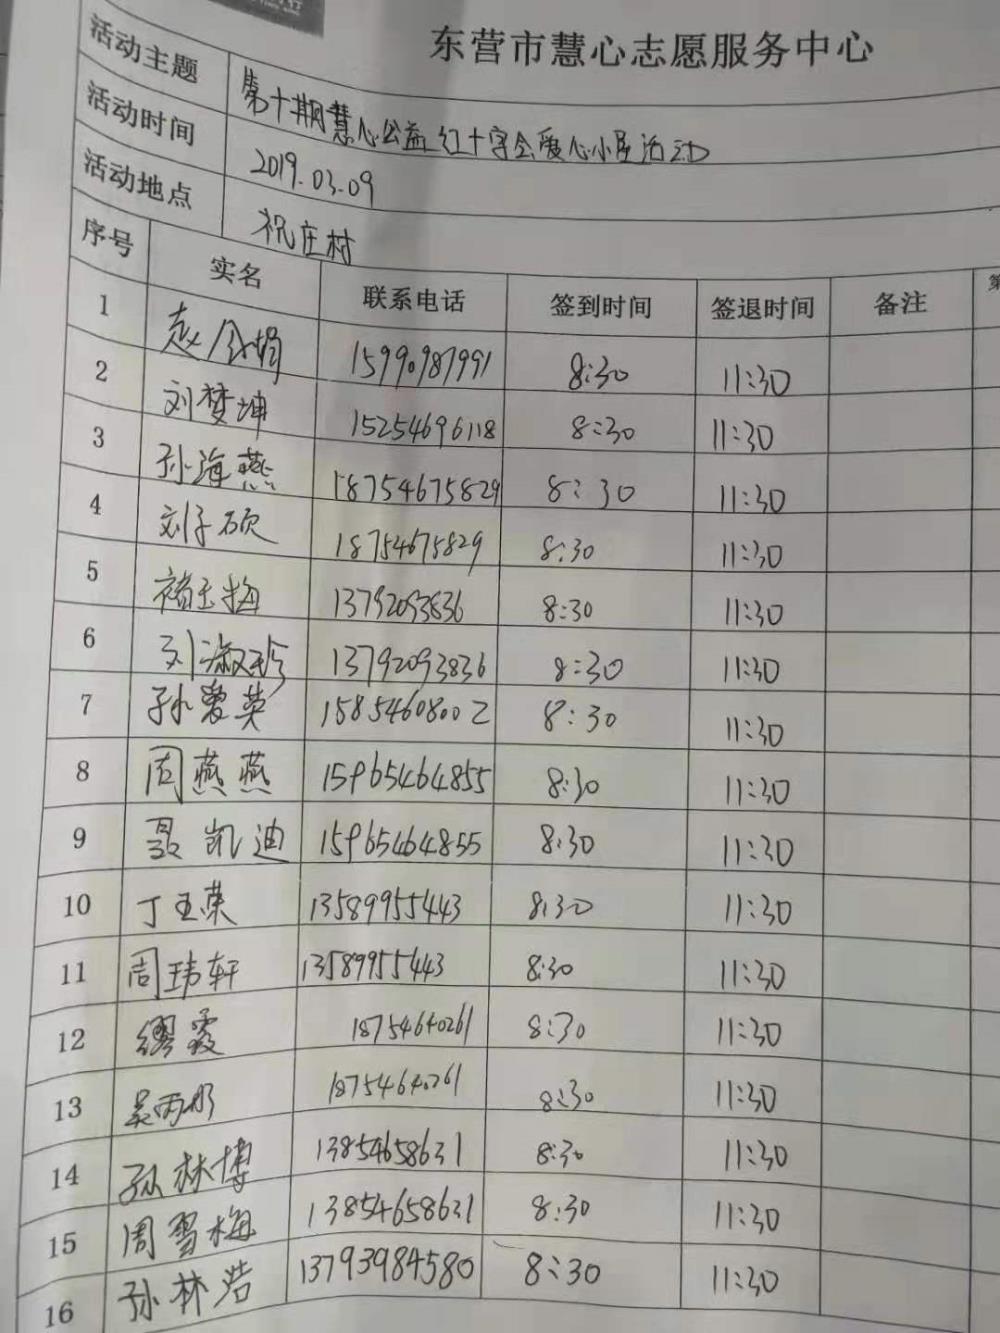 东营市慧心志愿服务中心
活动主题 第十期慧心公益红十字会爱心小屋活动
活动时间 2019.03.09
活动地点 祝庄村
序号 实名 联系电话 签到时间 签退时间 备注
1 赵金娟 15990987991 8:30 11:30
2 刘梦坤 15254696118 8:30 11:30
3 孙海燕 18754675829 8:30 11:30
4 刘子硕 18754675829 8:30 11:30
5 褚玉梅 13792093836 8:30 11:30
6 刘淑珍 13792093836 8:30 11:30
7 孙爱英 15854608002 8:30 11:30
8 周燕燕 15965464855 8:30 11:30
9 聂凯迪 15965464855 8:30 11:30
10 丁玉荣 13589955443 8:30 11:30
11 周玮轩 13589955443 8:30 11:30
12 缪霞 18754640261 8:30 11:30
13 吴雨彤 18754640261 8:30 11:30
14 孙林博 13854658631 8:30 11:30
15 周雪梅 13854658631 8:30 11:30
16 孙林浩 13793984580 8:30 11:30